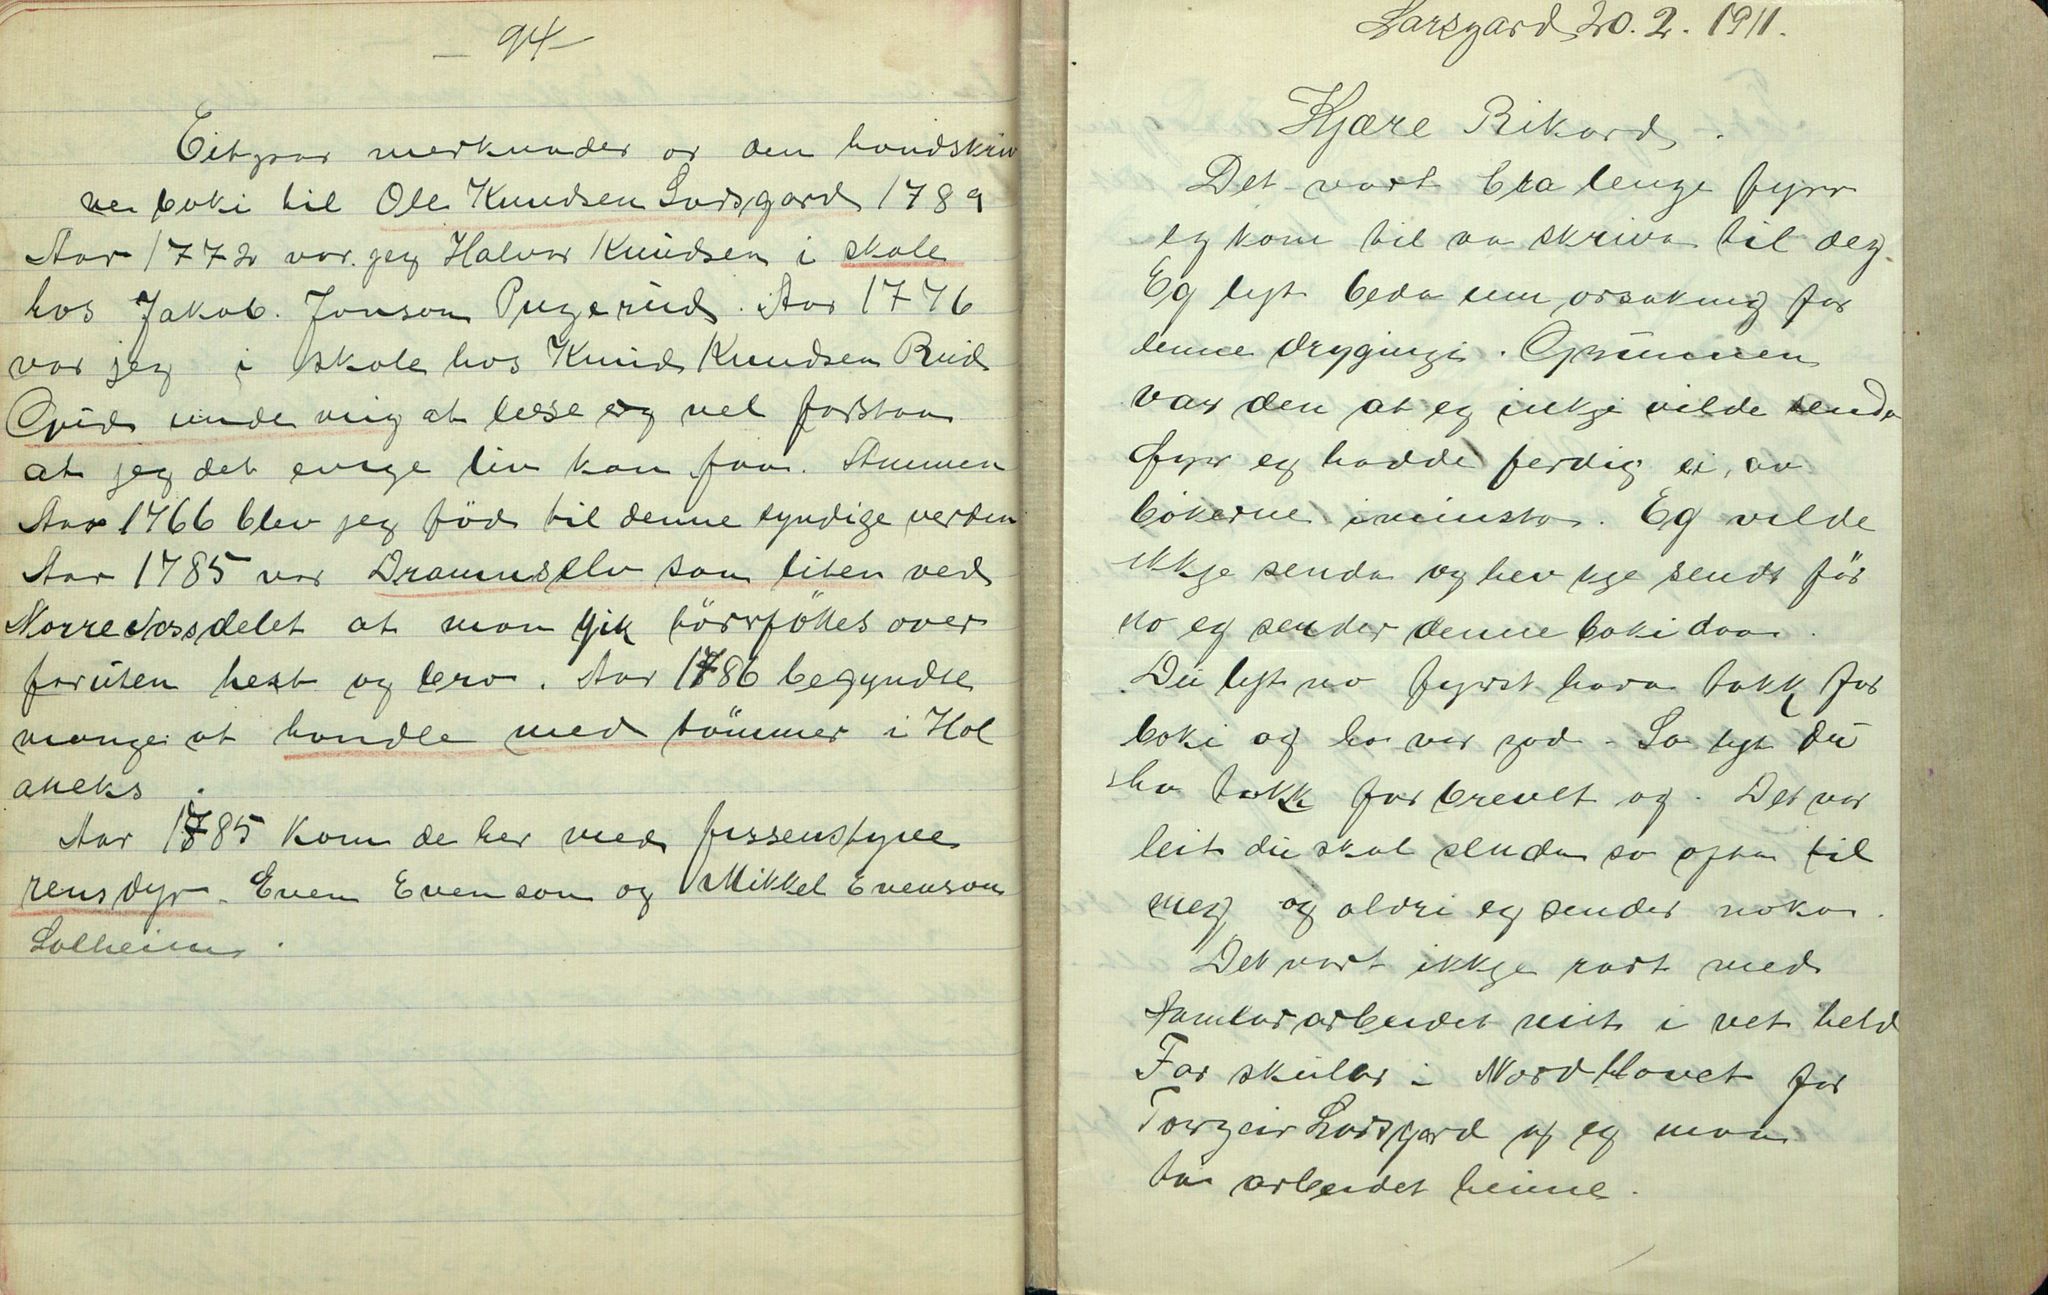 – 94 –
Eitpar merknader or den handskriv
ne boki til Ole Knudsen Larsgard 1789
Aar 1772 var jeg Halvor Knudsen i skole
hos Jakob Jonson Pugerud. Aar 1776
var jeg i skole hos Knud Knudsen Rud
Gud unde mig at læse og vel forstaa
at jeg det evige liv kan faa. Ammen
Aar 1766 blev jeg föd til denne syndige verden
Aar 1785 var Dramnselv saa liten ved
Norre at man gik törrföttes over
foruten hest og bro. Aar 1786 begyndte
mange at handle med tömmer i Hol
aneks.
Aar 1785 kom de her med
rensdyr. Even Evenson og Mikkel Evenson
Solheim.
Larsgard 20.2.1911.
Kjære Rikard.
Det vart bra lenge fyrr
eg kom til aa skriva til deg.
Eg lyt beda um orsaking for
denne drygingi. Grunnen
var den at eg inkje vilde senda
fyrr eg hadde ferdig ei av
bökerne iminsto. Eg vilde
ikkje senda og hev kje sendt för
no eg sender denne boki daa.
Du lyt no fyrst hava takk for
boki og ho var god. So lyt du
ha takk for brevet og. Det var
leit du skal senda so ofta til
meg og aldri eg sender noko.
Det vart ikkje rart med
samlararbeidet mit i vet held
Far skular i Nord Hovet for
Torgeir Larsgard og eg maa
ta arbeidet heime.